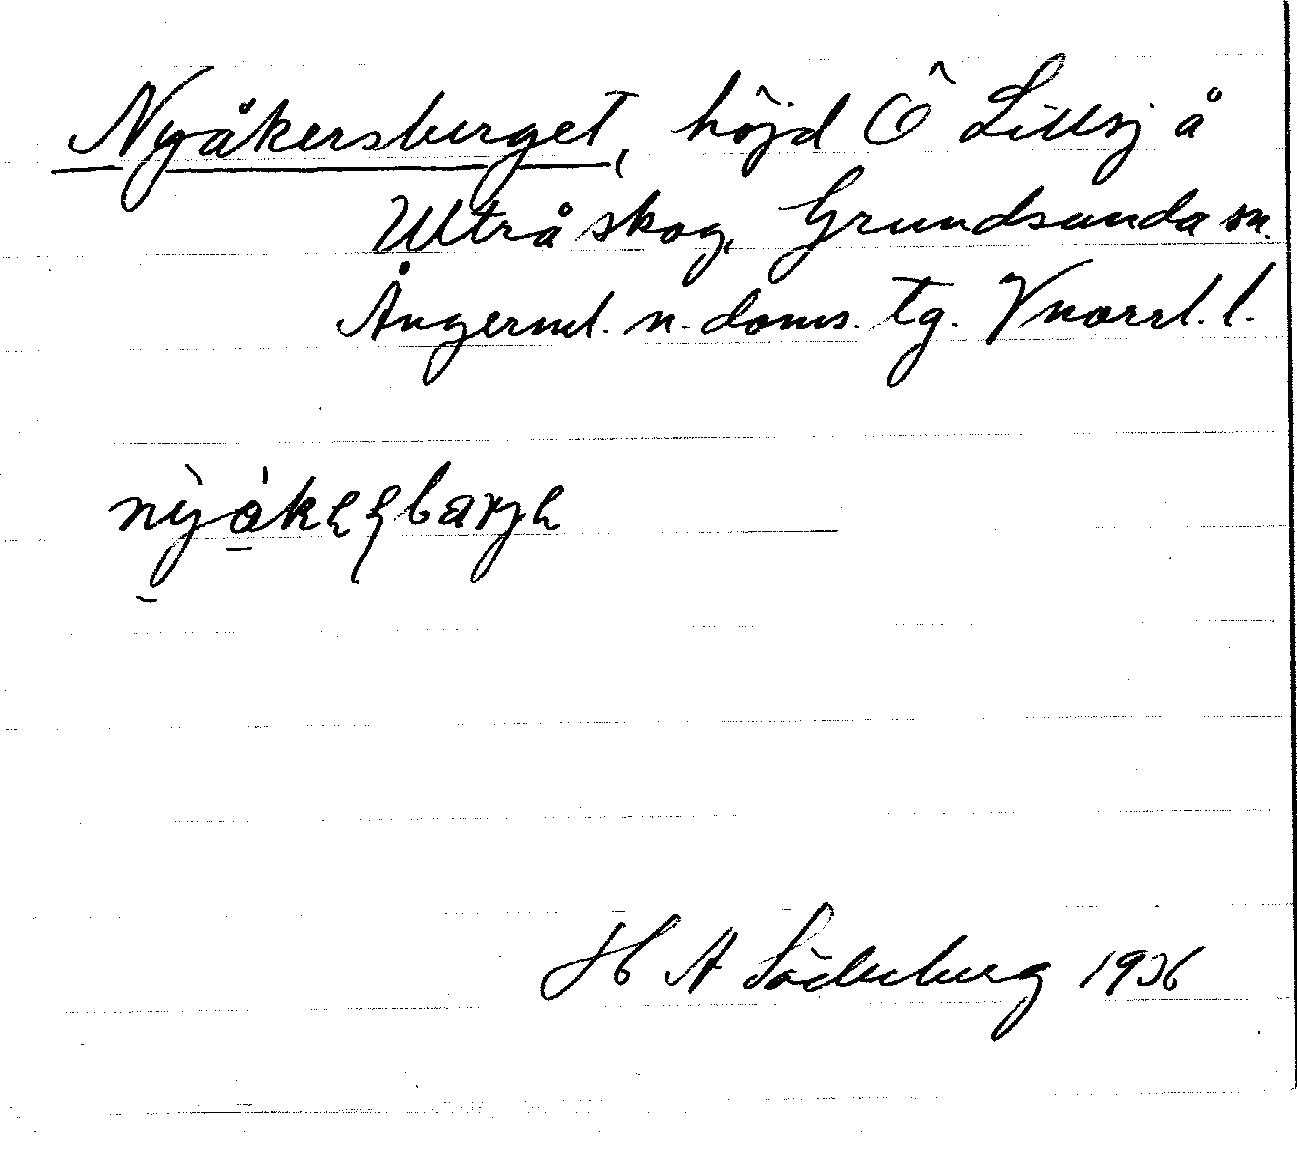 Nyåkersberget, höjd Ö Lillsj å
Ultrå skog, Grundsunda sn.
Ångerml. n. doms. tg. Vnorrl. l.
H A Söderberg 1936